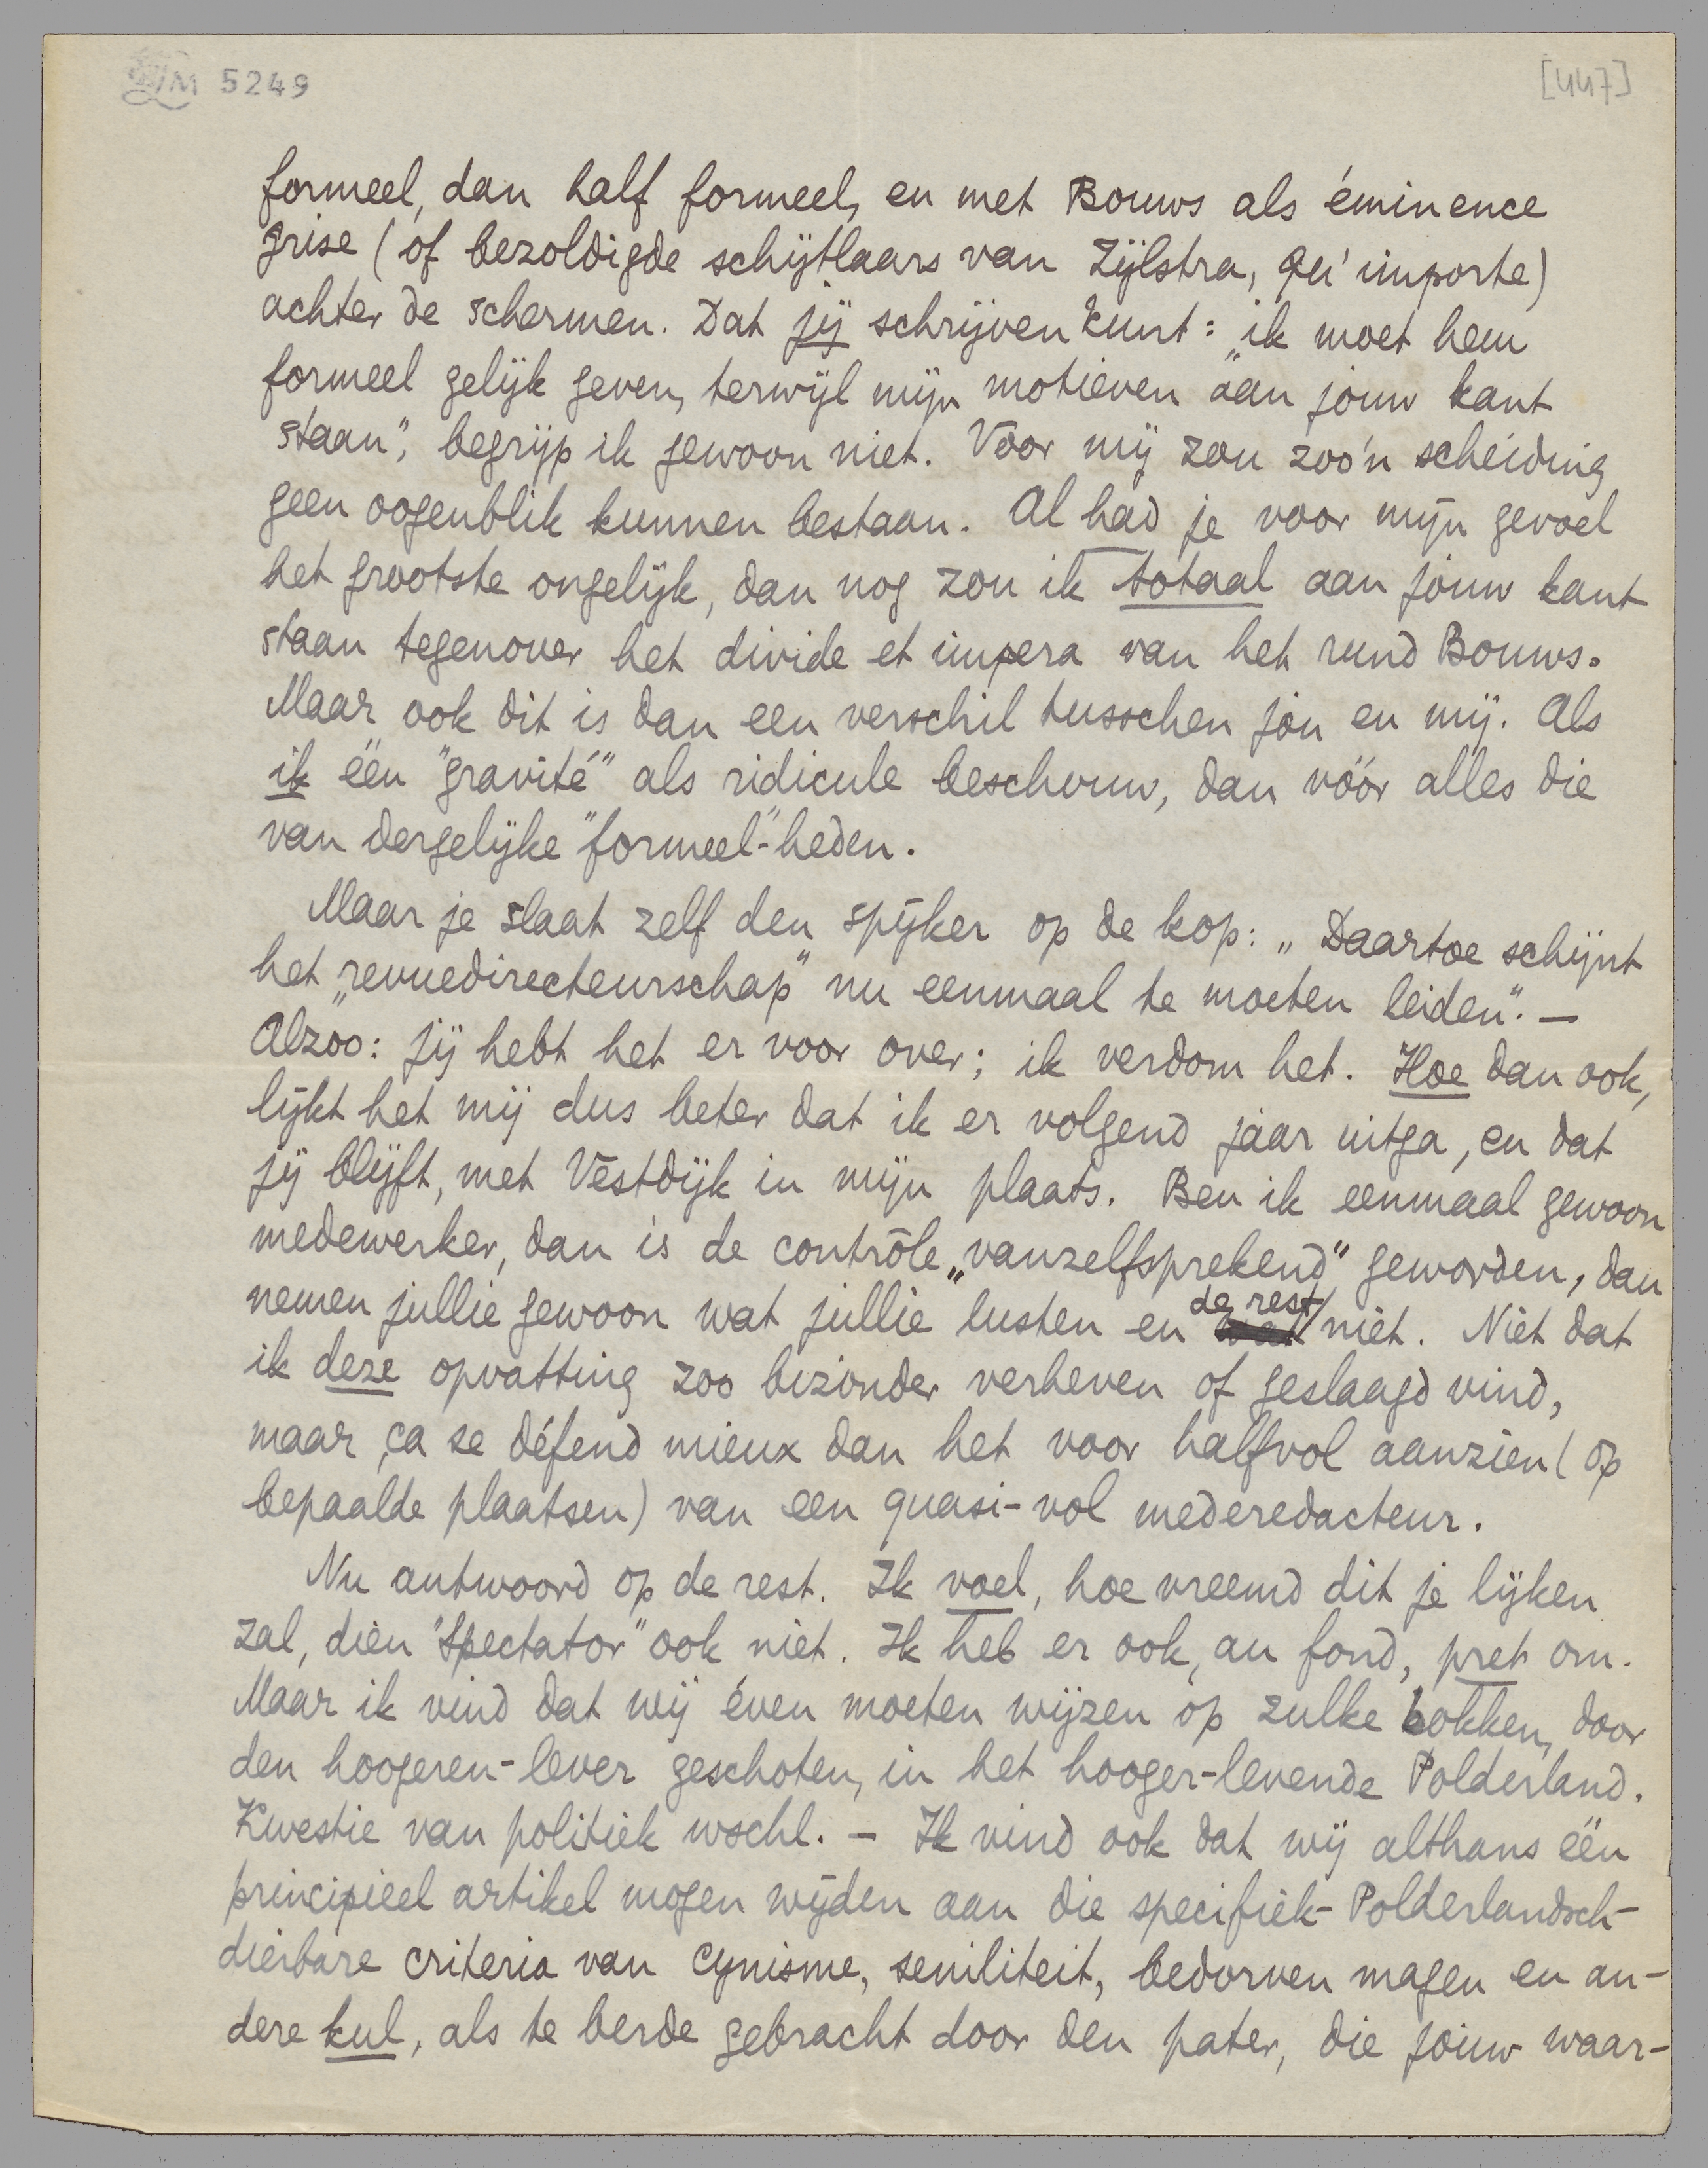 5249
[447]
formeel, dan half formeel, en met Bouws als éminence
grise (of bezoldigde schijtlaars van Zijlstra, qu'importe)
achter de schermen. Dat jij schrijven kunt: „ik moet hem
formeel gelijk geven, terwijl mijn motieven aan jouw kant
staan", begrijp ik gewoon niet. Voor mij zou zoo'n scheiding
geen oogenblik kunnen bestaan. Al had je voor mijn gevoel
het grootste ongelijk, dan nog zou ik totaal aan jouw kant
staan tegenover het divide et impera van het rund Bouws.
Maar ook dit is dan een verschil tusschen jou en mij. Als
ik één "gravité" als ridicule beschouw, dan vóór alles die
van dergelijke "formeel"-heden.
Maar je slaat zelf den spijker op de kop: „Daartoe schijnt
het „revuedirecteurschap" nu eenmaal te moeten leiden". —
Alzoo: jij hebt het er voor over; ik verdom het. Hoe dan ook,
lijkt het mij dus beter dat ik er volgend jaar uitga, en dat
jij blijft, met Vestdijk in mijn plaats. Ben ik eenmaal gewoon
medewerker, dan is de contrôle „vanzelfsprekend" geworden, dan
nemen jullie gewoon wat jullie lusten en de rest niet. Niet dat
ik deze opvatting zoo bizonder verheven of geslaagd vind,
maar ça se défend mieux dan het voor halfvol aanzien (op
bepaalde plaatsen) van een quasi-vol mederedacteur.
Nu antwoord op de rest. Ik voel, hoe vreemd dit je lijken
zal, dien "Spectator" ook niet. Ik heb er ook, au fond, pret om.
Maar ik vind dat wij éven moeten wijzen op zulke bokken, door
den hoogeren-lever geschoten, in het hooger-levende Polderland.
Kwestie van politiek wschl. – Ik vind ook dat wij althans één
principieel artikel mogen wijden aan die specifiek-Polderlandsch-
dierbare criteria van cynisme, seniliteit, bedorven magen en an-
dere kul, als te berde gebracht door den pater, die jouw waar-